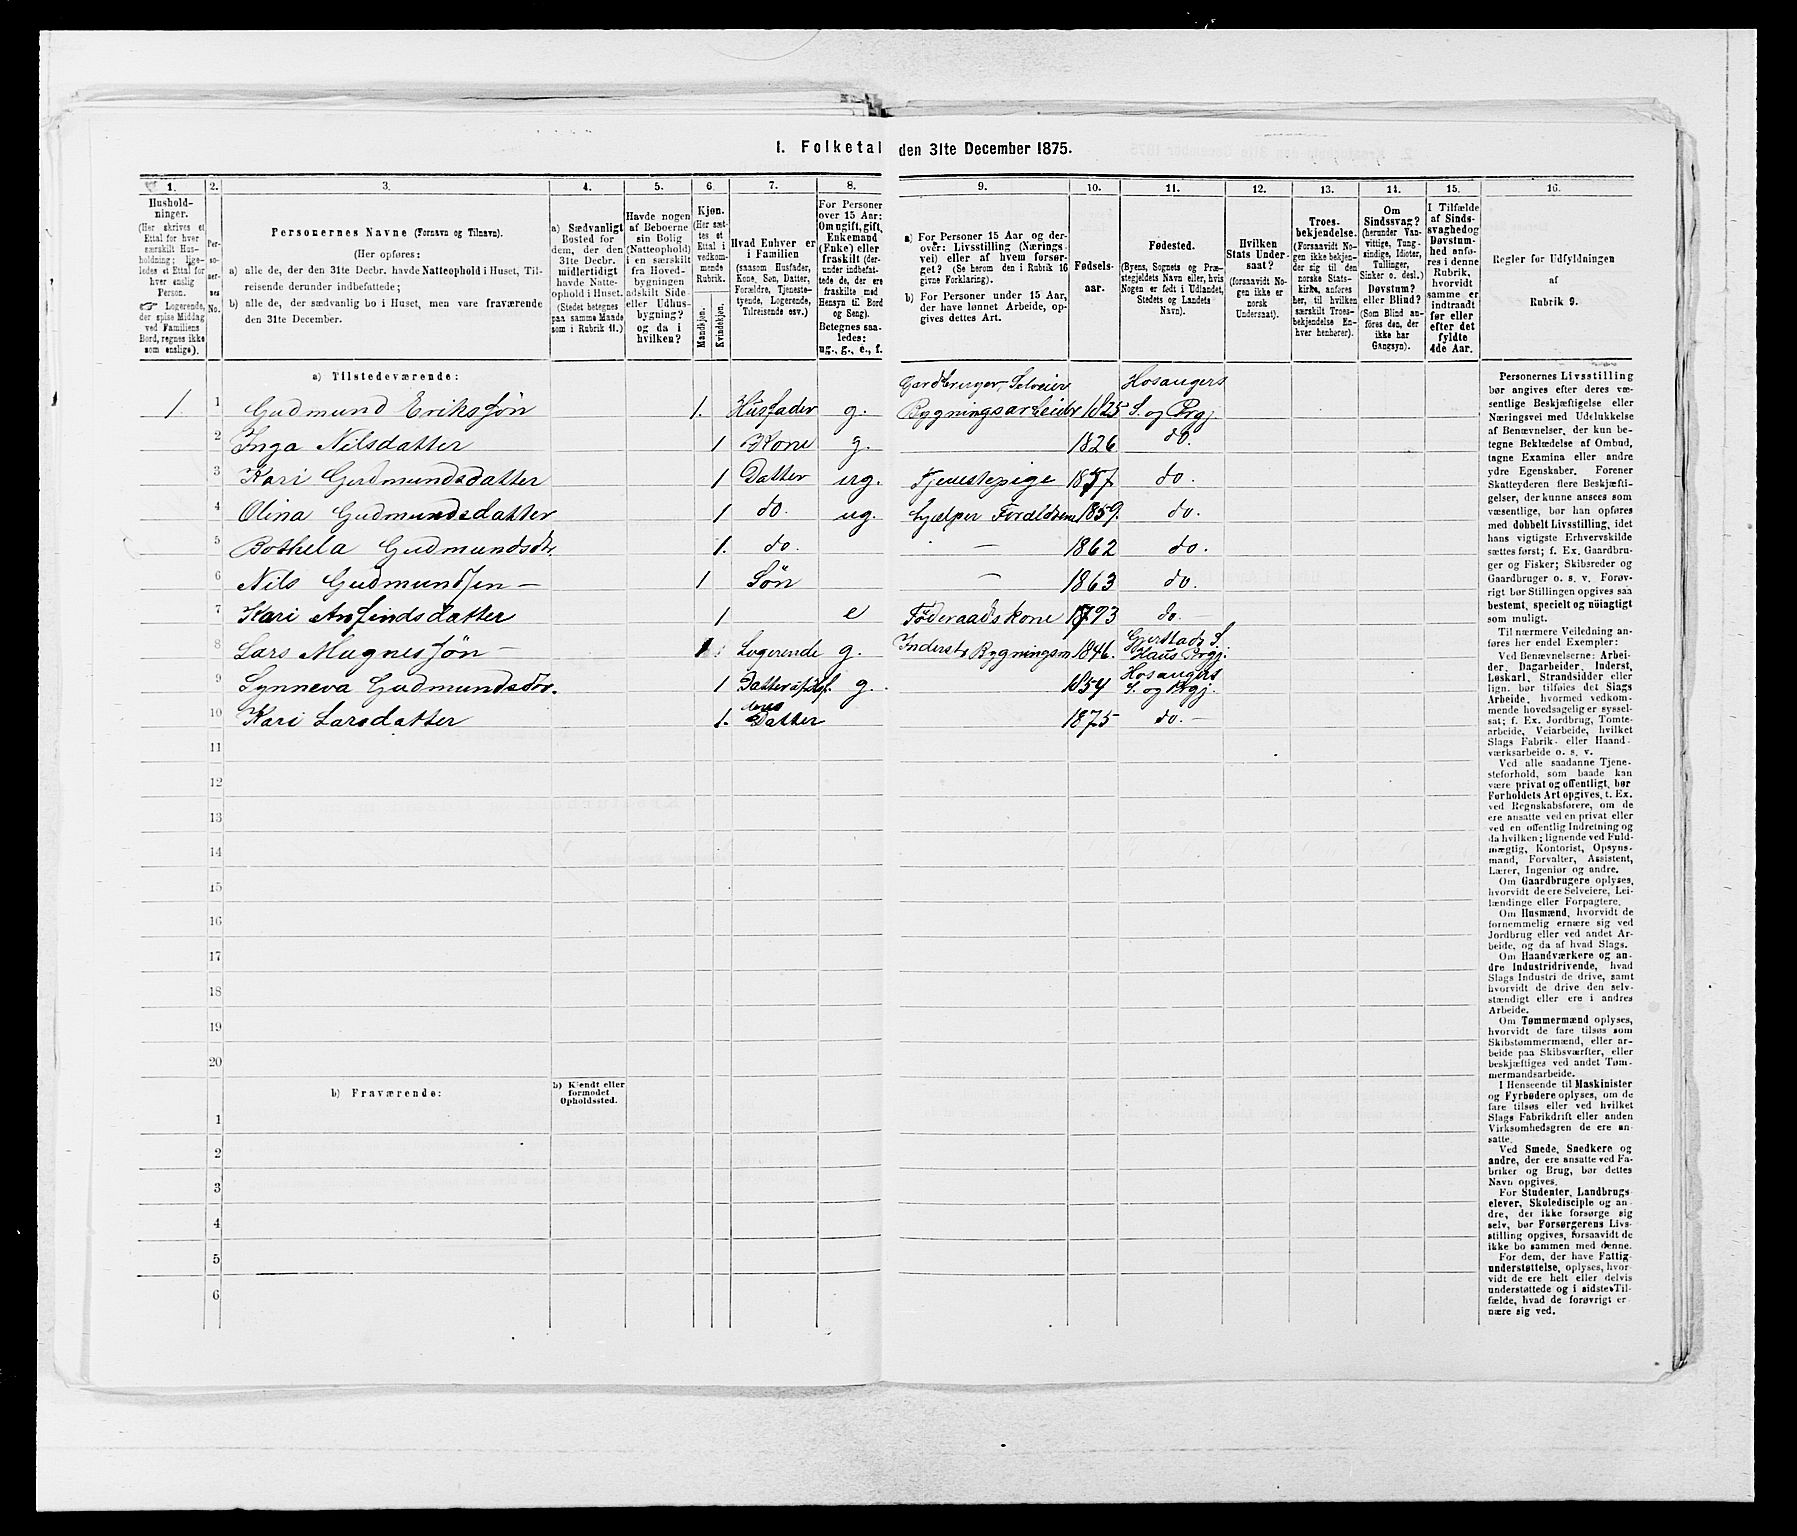 1. Folketal den 31te December 1875.
1. 2. 3. 4. 5. 6. 7. 8. 9. 10. 11. 12. 13. 14. 15. 16.
Hushold-
ninger.
(Her skrives et
Ettal for hver
særskilt Hus-
holdning; lige-
ledes et Ettal for
hver enslig
Person.
☞ Logerende,
der, spise Middag
ved Familiens
Bord, regnes ikke
som enslige).
Per-
so-
ner-
nes
No.
Personernes Navne (Fornavn og Tilnavn).
(Her opføres:
a) alle de, der den 31te Decbr. havde Natteophold i Huset, Til-
reisende derunder indbefattede;
b) alle de, der sædvanlig bo i Huset, men vare fraværende
den 31te December.
a) Sædvanligt
Bosted for
dem, der den
31te Decbr.
midlertidigt
havde Natte-
ophold i Huset.
(Stedet betegnes
paa samme Maade
som i Rubrik 11.)
Havde nogen
af Beboerne
sin Bolig
(Natteophold)
i en særskilt
fra Hoved-
bygningen
adskilt Side
eller Udhus-
bygning?
og da i
hvilken?
Kjøn.
(Her sæt-
tes et
Ettal i
vedkom-
mende
Rubrik.
Mandkjøn.
Kvindekjøn.
Hvad Enhver er
i Familien
(saasom Husfader,
Kone, Søn, Datter,
Forældre, Tjeneste-
tyende, Logerende,
Tilreisende osv.)
For Personer
over 15 Aar:
Om ugift, gift,
Enkemand
(Enke) eller
fraskilt (der-
under indbefat-
tede de, der ere
fraskilte med
Hensyn til Bord
og Seng).
Betegnes saa-
ledes:
ug., g., e., f.
a) For Personer 15 Aar og der-
over: Livsstilling (Nærings-
vei) eller af hvem forsør-
get? (Se herom den i Rubrik 16
givne Forklaring).
b) For Personer under 15 Aar,
der have lønnet Arbeide, op-
gives dettes Art.
Fødsels-
aar.
Fødested.
(Byens, Sognets og Præ-
stegjeldets Navn eller, hvis
Nogen er født i Udlandet,
Stedets og Landets
Navn).
Hvilken
Stats Under-
saat?
(forsaavidt No-
gen ikke er
norsk
Undersaat).
Troes-
bekjendelse.
(Forsaavidt No-
gen ikke bekjen-
der sig til den
norske Stats-
kirke, anføres
her, til hvilken
særskilt Troes-
bekjendelse En-
hver henhører).
Om
Sindssvag?
(herunder Van-
vittige, Tung-
sindige, Idioter,
Tullinger,
Sinker o. desl.)
Døvstum?
eller Blind?
(Som Blind an-
føres den, der
ikke har
Gangsyn).
I Tilfælde
af Sinds-
svaghed og
Døvstum-
hed anfø-
res i denne
Rubrik,
hvorvidt
samme er
indtraadt
før eller
efter det
fyldte
4de Aar.
Regler for Udfyldningen
af
Rubrik 9.
a) Tilstedeværende:
Gardbruger, Selveier Hosangers
1. 1 Gudmund Eriksøn 1. Husfader g. Bygningsarbeider 1825 S. og Prgj.
2 Inga Nilsdatter 1 Kone g. 1826 do.
3 Kari Gudmundsdatter 1 Datter ug. Tjenestepige 1857 do.
4 Olina Gudmundsdatter 1 do. ug. hjælper Forældrene 1859. do.
5 Bothela Gudmundsdr. 1. do. — 1862 do.
6 Nils Gudmundsen — 1 Søn — 1863 do.
7 Kari Anfindsdatter 1 e Föderaadskone 1793 do.
8 Lars Magnesøn — 1 Logerende g. Inderst, Bygningsm 1846. Gjerstads S. Haus Prgj.
9 Synneva Gudmundsdtr. 1 g. 1854 Hosangers S. og Prgj.
10 Kari Larsdatter 1. deres Datter 1875 do. —
11
12
13
14
15
16
17
18
19
20
b) Fraværende:
b) Kjendt eller
formodet
Opholdssted.
1
2
3
4
5
6
Personernes Livsstilling
bør angives efter deres væ-
sentlige Beskjæftigelse eller
Næringsvei med Udelukkelse
af Benævnelser, der kun be-
tegne Beklædelse af Ombud,
tagne Examina eller andre
ydre Egenskaber. Forener
Skatteyderen flere Beskjæfti-
gelser, der kunne ansees som
væsentlige, bør han opføres
med dobbelt Livsstilling, idet
hans vigtigste Erhvervskilde
sættes først; f. Ex. Gaardbru-
ger og Fisker; Skibsreder og
Gaardbruger o. s. v. Forøv-
rigt bør Stillingen opgives saa
bestemt, specielt og nøiagtigt
som muligt.
Til nærmere Veiledning an-
føres her endel Exempler:
Ved Benævnelserne: Arbei-
der, Dagarbeider, Inderst,
Løskarl, Strandsidder eller
lign. bør tilføies det Slags
Arbeide, hvormed vedkom-
mende hovedsagelig er syssel-
sat; f. Ex. Jordbrug, Tomte-
arbeide, Veiarbeide, hvilket
Slags Fabrik- eller Haand-
værksarbeide o. s. v.
Ved alle saadanne Tjene-
steforhold, som baade kan
være privat og offentligt, bør
Forholdets Art opgives, t. Ex.
ved Regnskabsførere, om de
ere ansatte ved en privat eller
ved en offentlig Indretning og
da hvilken; lignende ved Fuld-
mægtig, Kontorist, Opsyns-
mand, Forvalter, Assistent,
Lærer, Ingeniør og andre.
Om Gaardbrugere oplyses,
hvorvidt de ere Selveiere, Lei-
lændinge eller Forpagtere.
Om Husmænd, hvorvidt de
fornemmelig ernære sig ved
Jordbrug eller ved andet Ar-
beide, og da af hvad Slags.
Om Haandværkere og an-
dre Industridrivende, hvad
Slags Industri de drive, samt
hvorvidt de drive den selv-
stændigt eller ere i andres
Arbeide.
Om Tømmermænd oplyses,
hvorvidt de fare tilsøs som
Skibstømmermænd, eller ar-
beide paa Skibsværfter, eller
beskjæftiges ved andet Tøm-
mermandsarbeide.
I Henseende til Maskinister
og Fyrbødere oplyses, om de
fare tilsøs eller ved hvilket
Slags Fabrikdrift eller anden
Virksomhedsgren de ere an-
satte.
Ved Smede, Snedkere og
andre, der ere ansatte ved Fa-
briker og Brug, bør dettes
Navn opgives.
For Studenter, Landbrugs-
elever, Skoledisciple og an-
dre, der ikke forsørge sig
selv, bør Forsørgerens Livs-
stilling opgives, forsaavidt de
ikke bo sammen med denne.
For dem, der have Fattig-
understøttelse, oplyses, hvor-
vidt de ere helt eller delvis
understøttede og i sidste Til-
fælde, hvad de forøvrigt er-
nære sig ved.